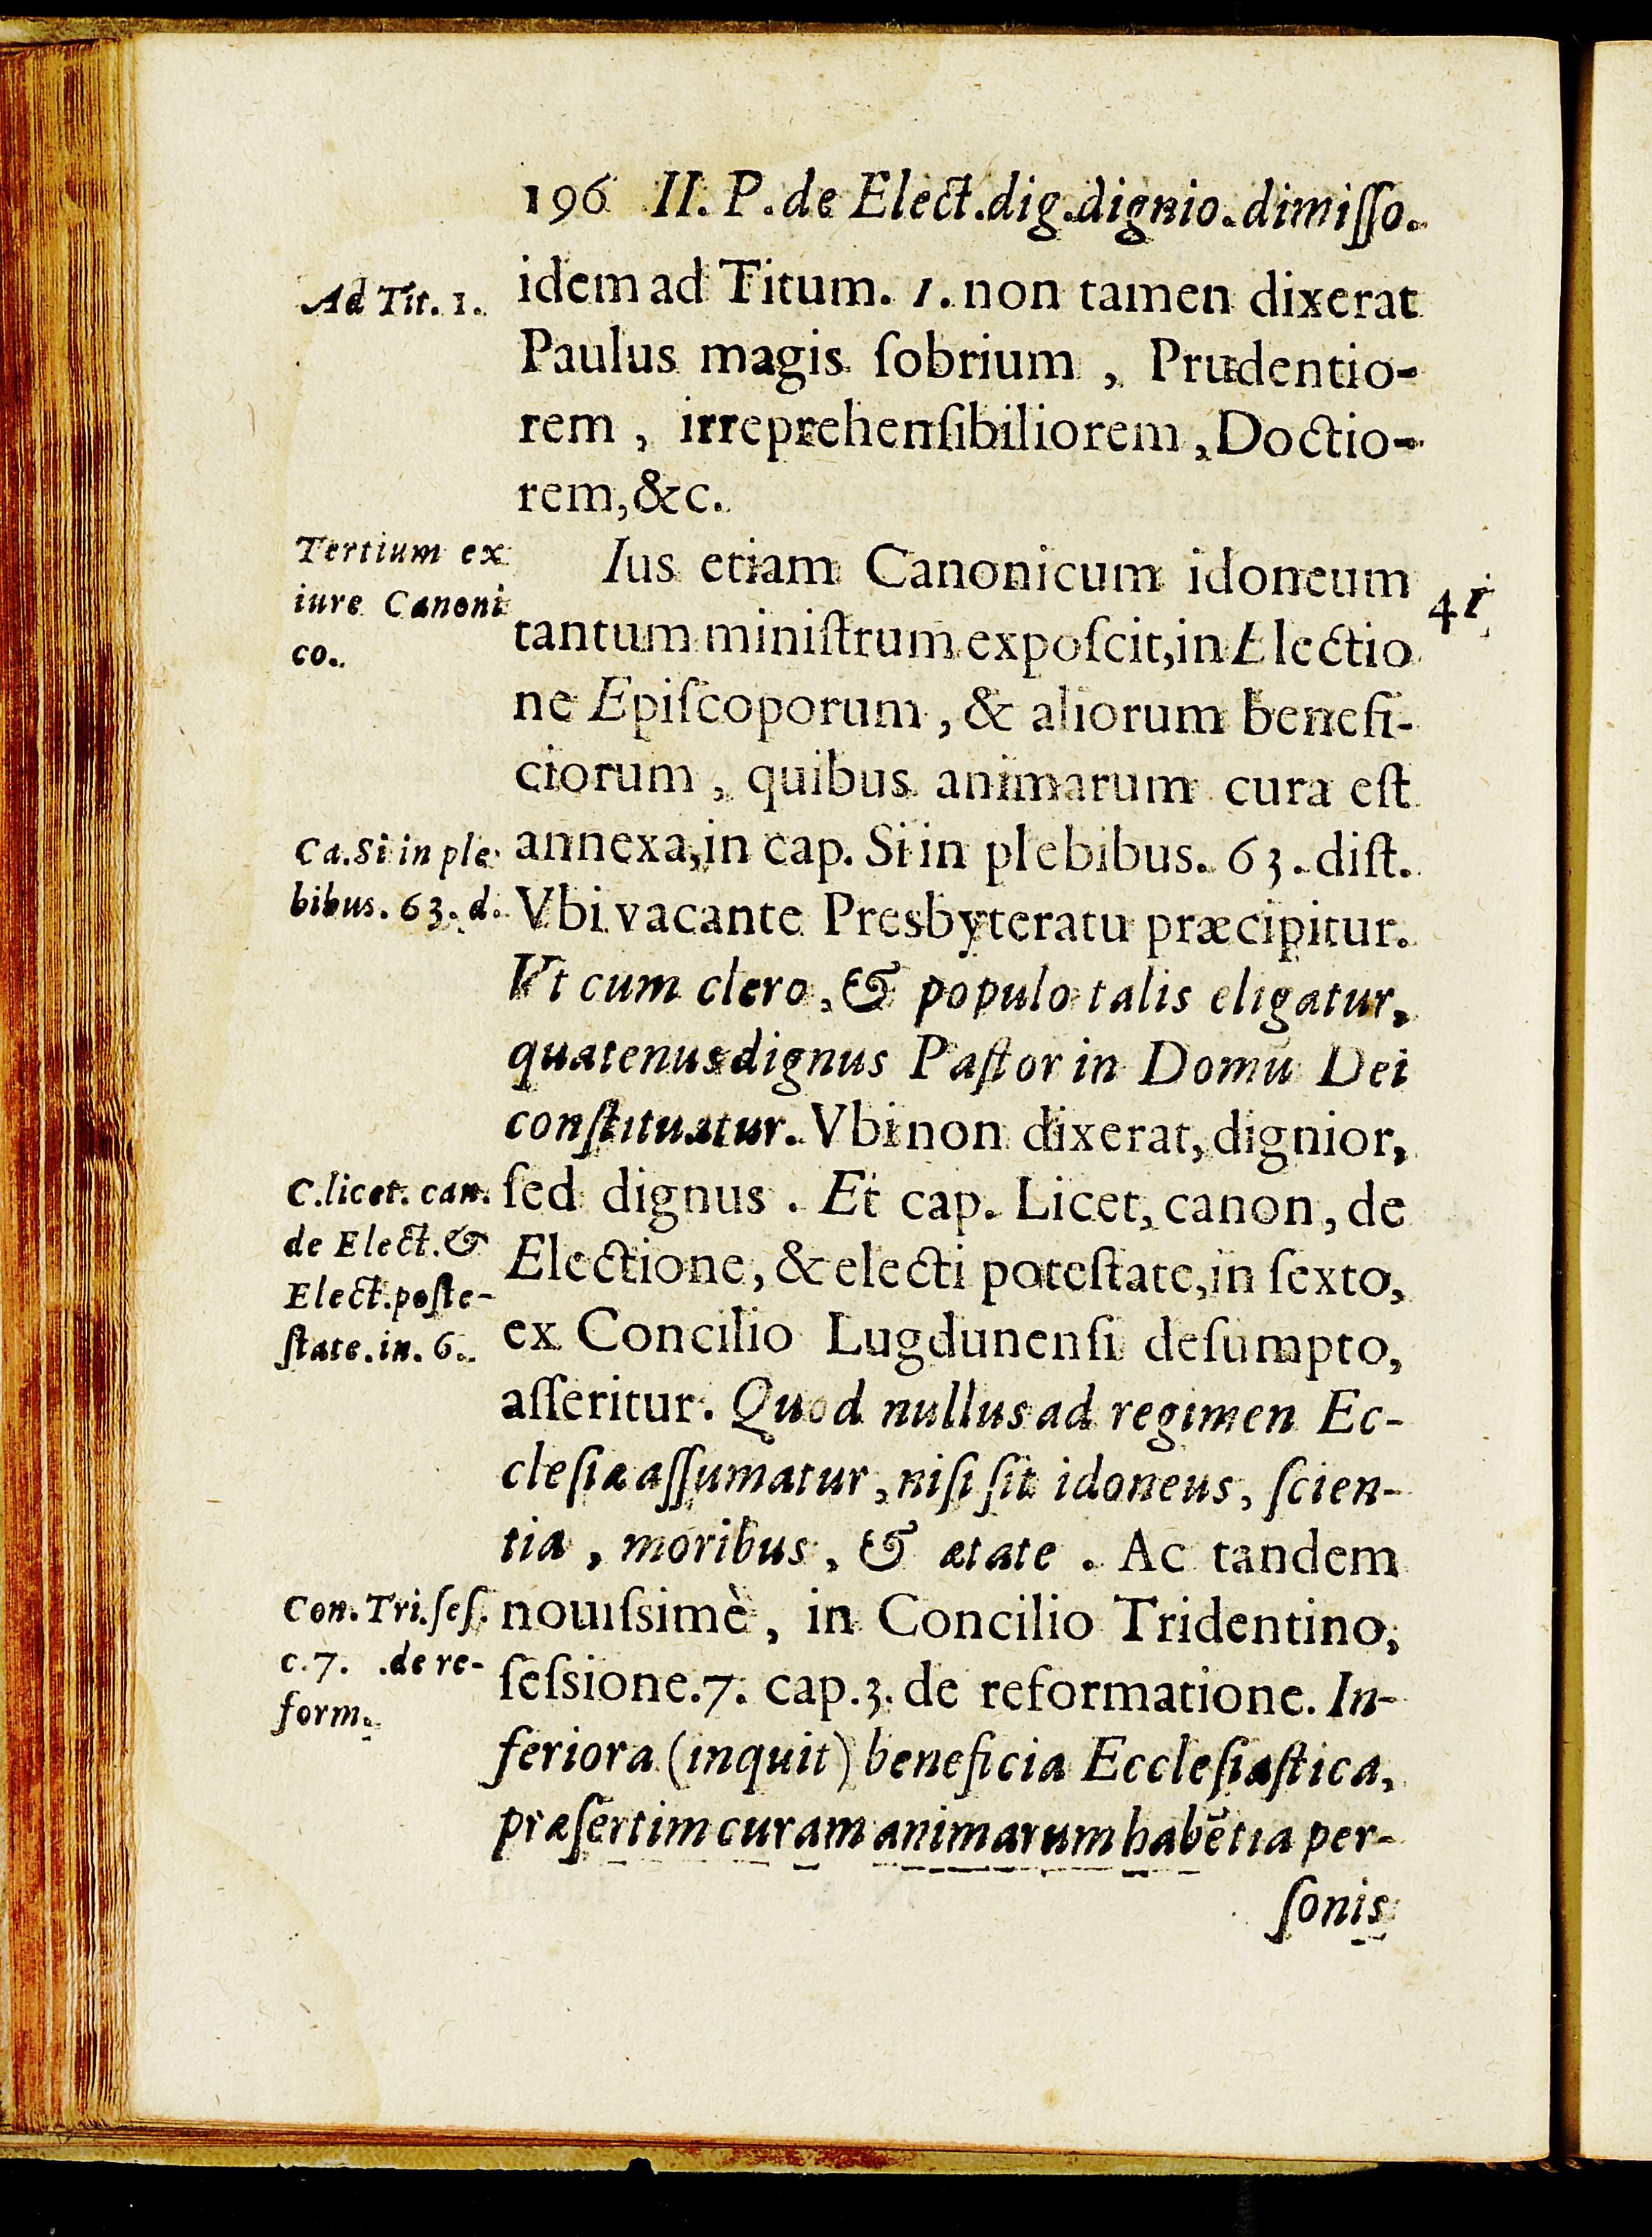 196 II. P. de Elect. dig. dignio. dimiſſo.
Ad Tit. 1.
idem ad Titum. 1. non tamen dixerat
Paulus magis ſobrium, Prudentio-
rem, irreprehenſibiliorem, Doctio-
rem, &c.
Tertium ex
iure Canoni
co.
Ius etiam Canonicum idoneum
41
tantum miniſtrum expoſcit, in Electio
ne Epiſcoporum, & aliorum benefi-
ciorum, quibus animarum cura eſt
Ca. Si in ple
bibus. 63. d.
annexa, in cap. Si in plebibus. 63. diſt.
Vbi vacante Presbyteratu præcipitur.
Vt cum clero, & populo talis eligatur,
quatenus dignus Paſtor in Domū Dei
conſtituatur. Vbi non dixerat, dignior,
C. licet. can.
de Elect. &
Elect. poſte-
ſtate. in. 6.
ſed dignus. Et cap. Licet, canon, de
Electione, & electi poteſtate, in ſexto,
ex Concilio Lugdunenſi deſumpto,
aſſeritur. Quod nullus ad regimen Ec-
cleſiæ aſſumatur, niſi ſit idoneus, ſcien-
tia, moribus, & ætate. Ac tandem
Con. Tri. ſeſ.
c. 7. .de re-
form.
nouiſsimè, in Concilio Tridentino,
ſeſsione. 7. cap. 3. de reformatione. In-
feriora (inquit) beneficia Eccleſiaſtica,
præſertim curam animarum habētia per-
ſonis